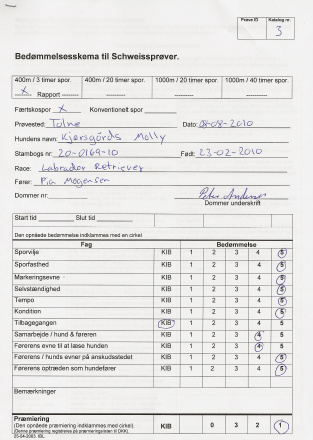 Prøve ID Katalog nr.
3
Bedømmelsesskema til Schweissprøver.
400m / 3 timer spor. 400m / 20 timer spor. 1000m / 20 timer spor. 1000m / 40 timer spor.
X Rapport
Færtskospor X Konventionelt spor
Prøvested: Tolne Dato: 08-08-2010
Hundens navn: Kjersgårds Molly
Stambogs nr: 20-0169-10 Født: 23-02-2010
Race: Labrador Retriever
Fører: Pia Mogensen
Dommer nr. Peter Andersen
Dommer underskrift
Start tid Slut tid
Den opnåede bedømmelse indklammes med en cirkel
Fag Bedømmelse
Sporvilje KIB 1 2 3 4 5
Sporfasthed KIB 1 2 3 4 5
Markeringsevne KIB 1 2 3 4 5
Selvstændighed KIB 1 2 3 4 5
Tempo KIB 1 2 3 4 5
Kondition KIB 1 2 3 4 5
Tilbagegangen KIB 1 2 3 4 5
Samarbejde / hund & føreren KIB 1 2 3 4 5
Førerens evne til at læse hunden KIB 1 2 3 4 5
Førerens / hunds evner på anskudsstedet KIB 1 2 3 4 5
Førerens optræden som hundefører KIB 1 2 3 4 5
Bemærkninger
Præmiering
(Den opnåede præmiering indklammes med en cirkel) KIB 0 3 2 1
(Denne præmiering registreres på præmieringslisten til DKK)
25-04-2003. IBL